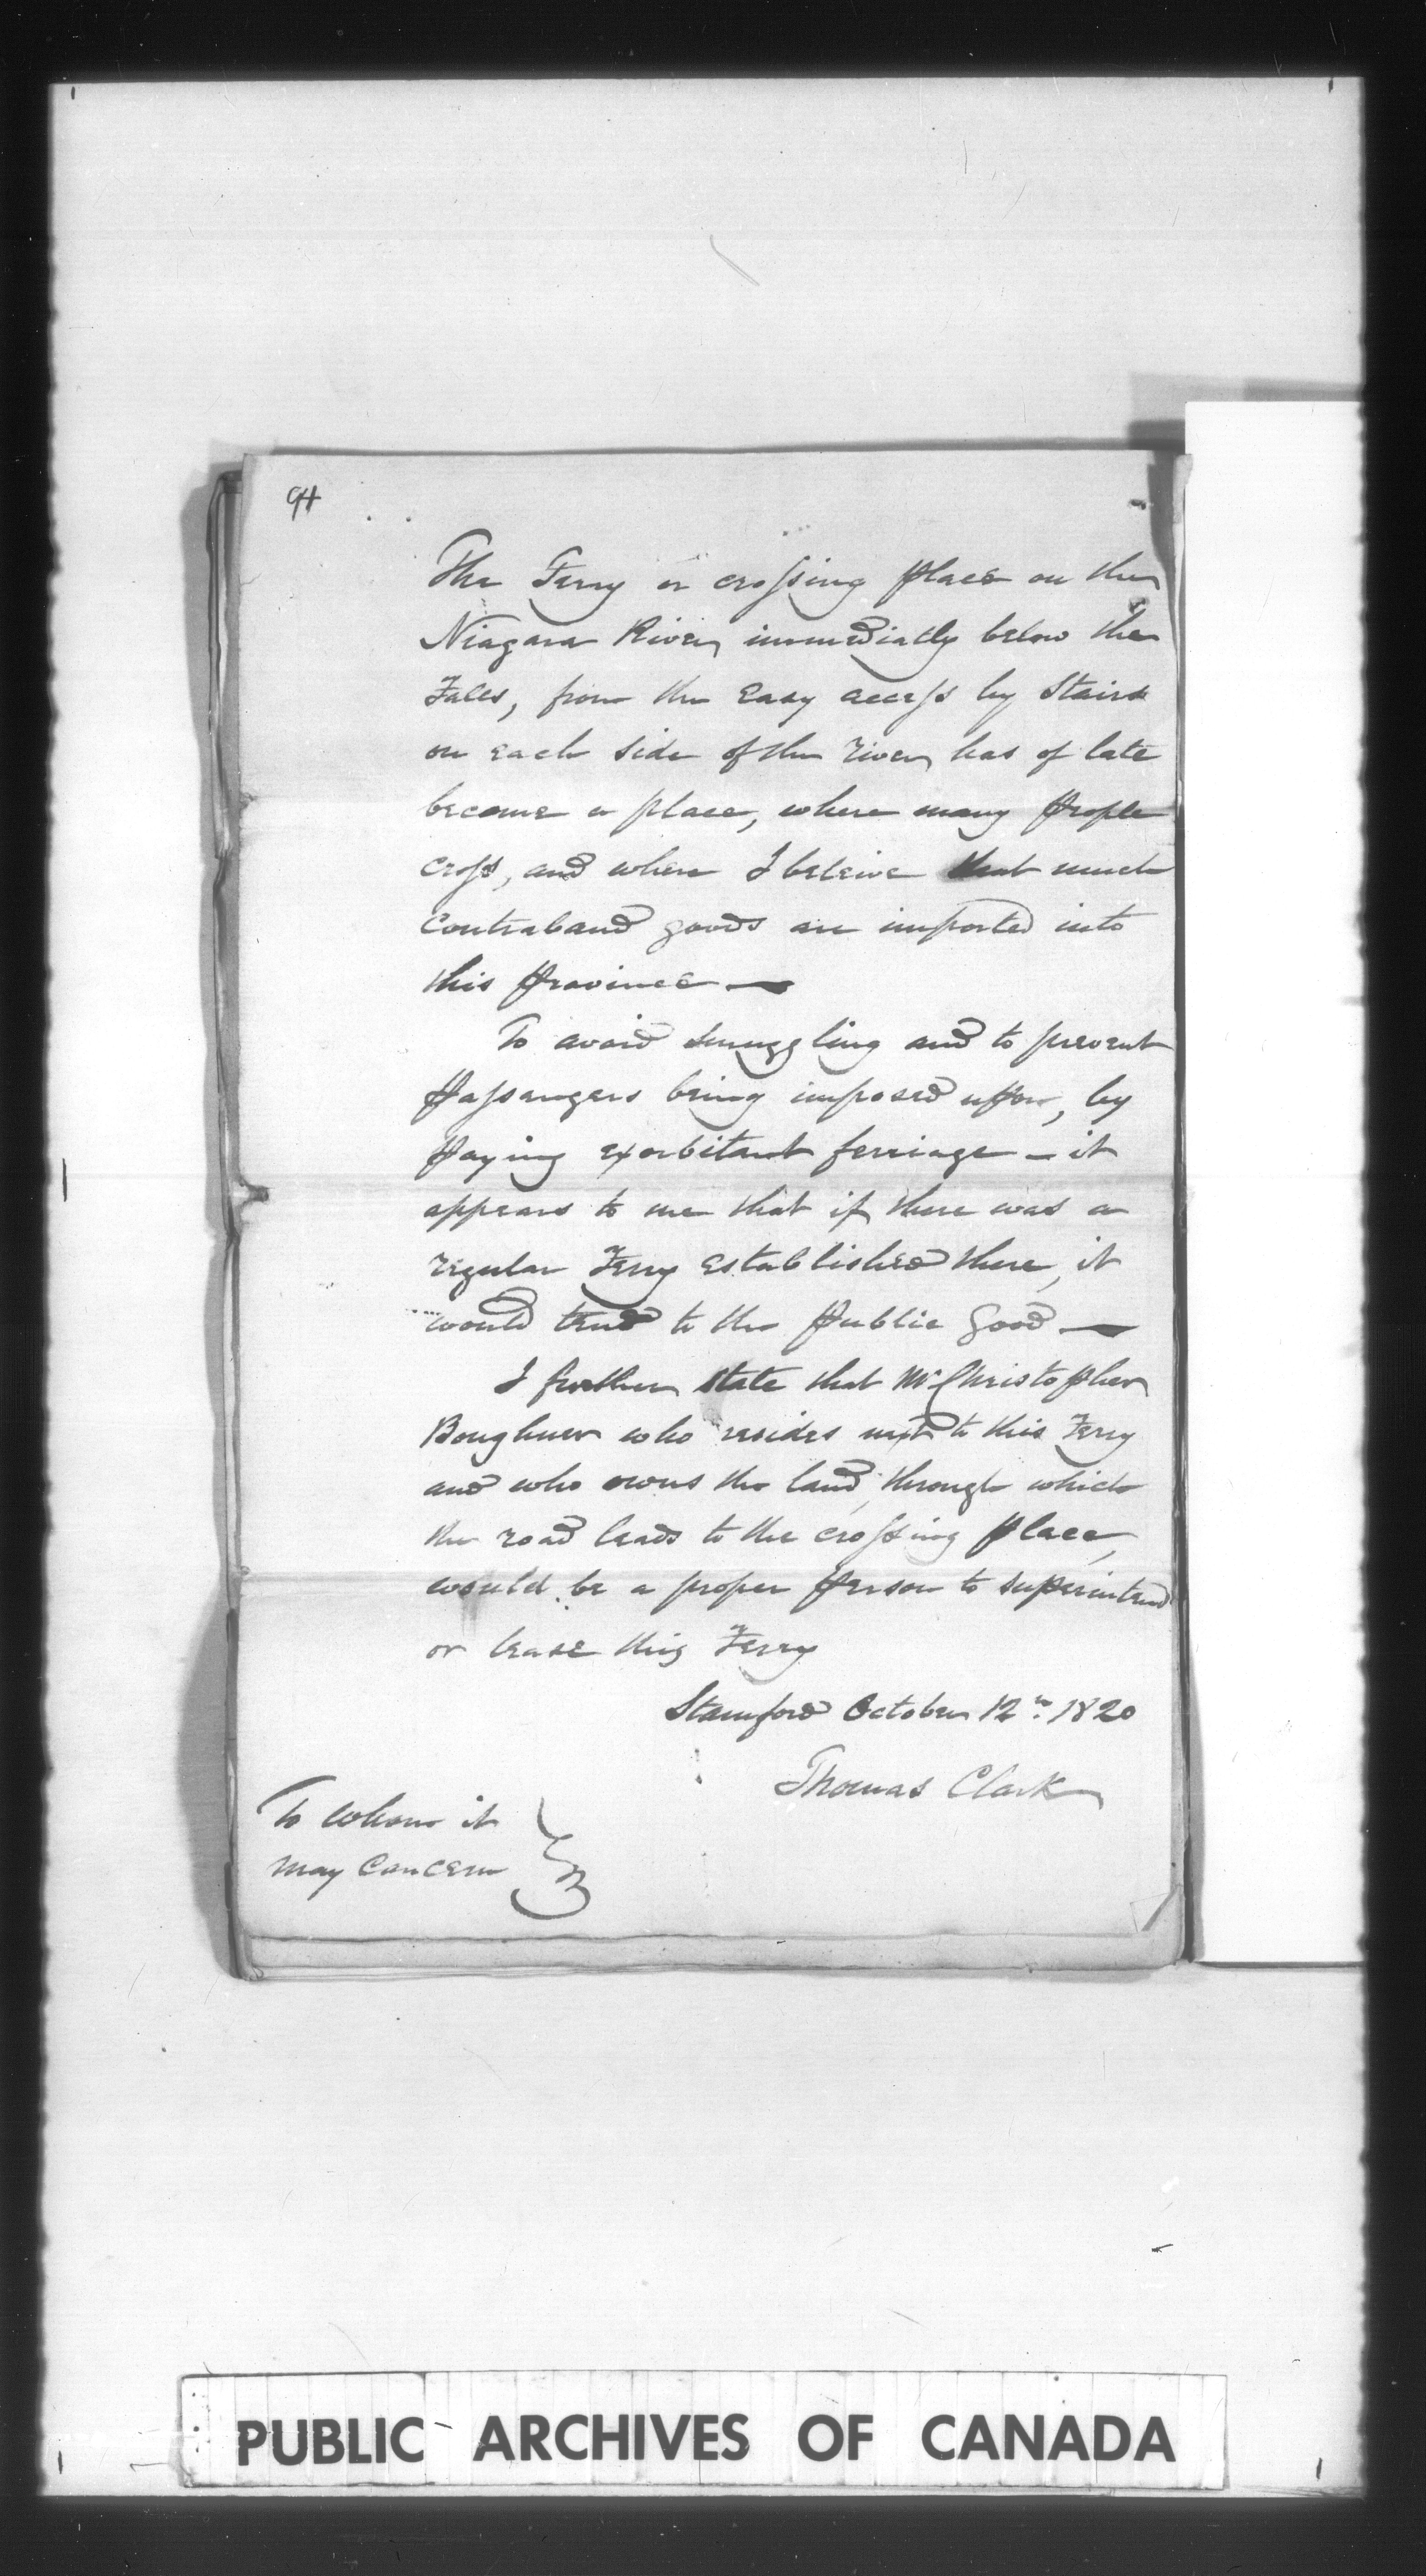 94
The Ferry or crossing place on the
Niagara River immediatly below the
Falls, from the Easy access by Stairs
on each side of the river has of late
become a place, where many people
cross, and where I beleive that much
Contraband goods are imported into
this province —
To avoid smuggling and to prevent
passangers being imposed upon, by
paying exorbitant ferriage — it
appears to me that if there was a
regular Ferry Established there, it
would tend to the public Good —
I further state that Mr Christopher
Boughner who resides next to this Ferry
and who owns the land, through which
the road leads to the crossing place,
would be a proper person to superintend
or lease this Ferry
Stamford October 12th 1820
Thomas Clark
To Whom it
may Concern
PUBLIC ARCHIVES OF CANADA